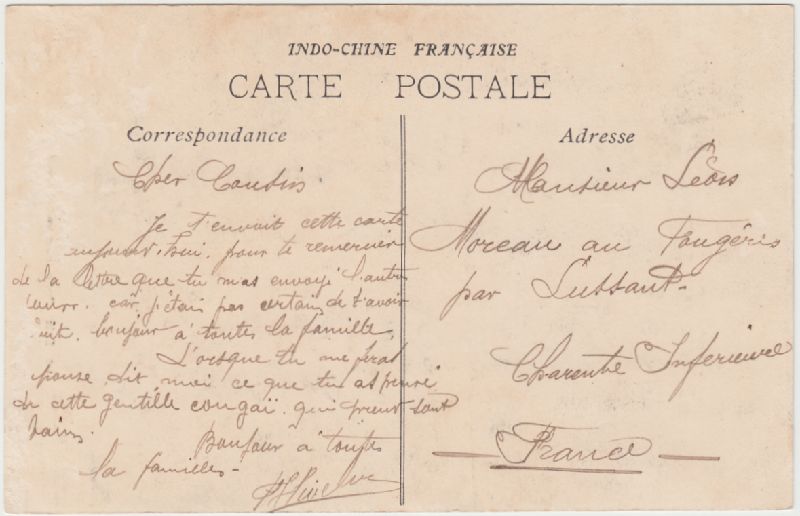 INDO-CHINE FRANÇAISE
CARTE POSTALE
Correspondance
Cher Cousin.
Je t'envoit cette carte
pour te remercier
de la lettre que tu m'as envoyé l'autre
car j'étais pas certain de t'avoir
bonjour à toutes la famille.
Lorsque tu me feras
dit moi ce que tu as pensé
de cette gentille congaï qui prend sont
bains.
Bonjour à toutes
la familles-
Adresse
Monsieur Léon
Moreau au Fougéris
par Lussant-
Charente Inferieure
France